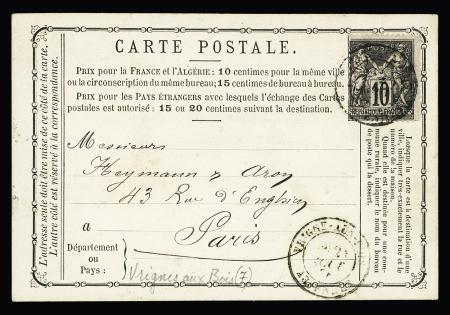 CARTE POSTALE.
PRIX pour la FRANCE et l'ALGÉRIE: 10 centimes pour la même ville
ou la circonscription du même bureau; 15 centimes de bureau à bureau.
PRIX pour les PAYS ÉTRANGERS avec lesquels l'échange des Cartes
postales est autorisé: 15 ou 20 centimes suivant la destination.
10
L'adresse seule doit être mise de ce côté de la carte.
L'autre côté est réservé à la correspondance.
Messieurs
Heymann & Aron
43 Rue d'Enghien
à Paris
Département
ou
Pays:
Vrignes aux Bois (7)
Lorsque la carte est à destination d'une
ville, indiquer très-exactement la rue et le
numéro de la maison.
Quand elle est destinée pour une com-
mune rurale, indiquer le nom du bureau
de poste qui la dessert.